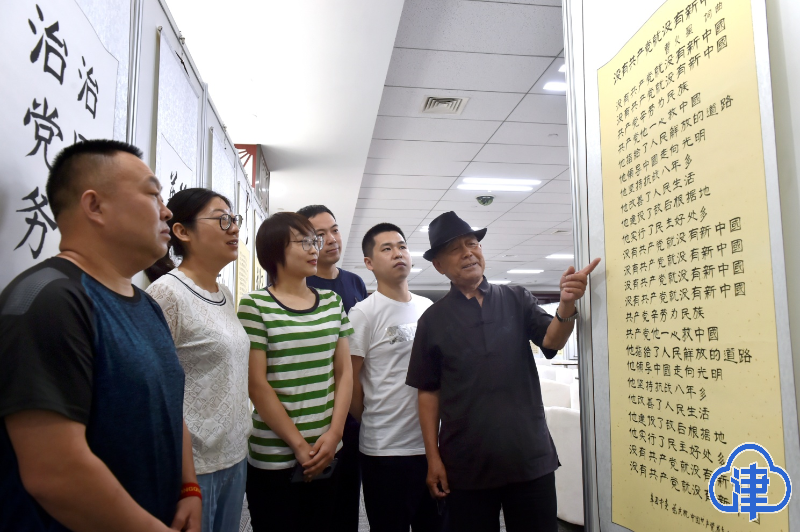 治党务
治
没有共产党就没有新中國
曹火星 词曲
没有共产党就没有新中國
没有共产党就没有新中國
共产党辛劳为民族
共产党他一心救中國
他指给了人民解放的道路
他领导中國走向光明
他坚持抗战八年多
他改善了人民生活
他建设了敌后根据地
他实行了民主好处多
没有共产党就没有新中國
没有共产党就没有新中國
没有共产党就没有新中國
共产党辛劳为民族
共产党他一心救中國
他指给了人民解放的道路
他领导中國走向光明
他坚持抗战八年多
他改善了人民生活
他建设了敌后根据地
他实行了民主好处多
没有共产党就没有新
没有共产党就没有新
津